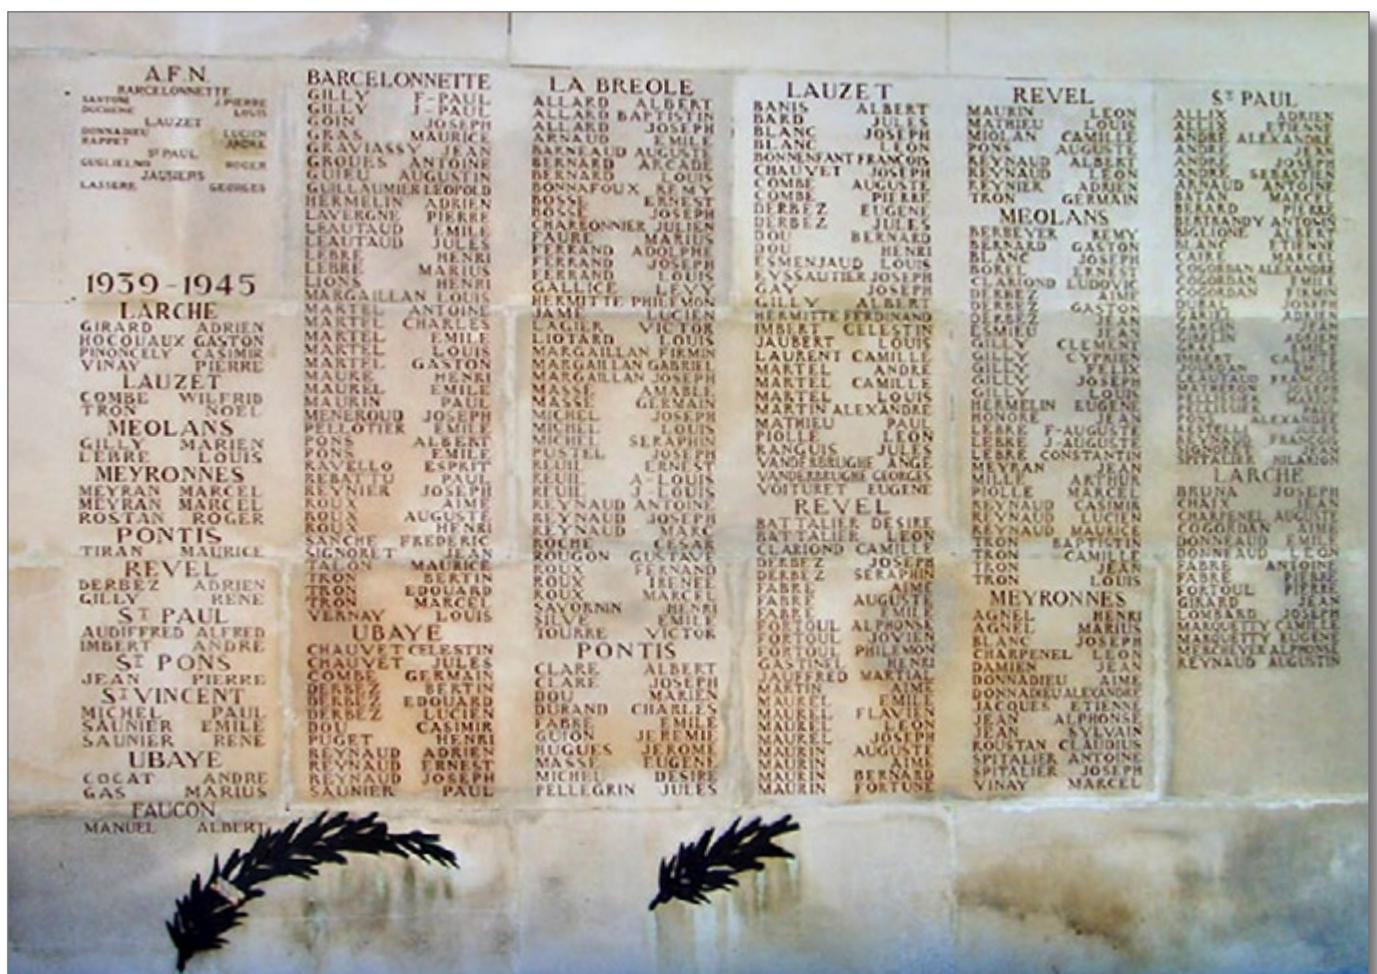 A.F.N.
BARCELONNETTE
SANTONE J.PIERRE
DUCHENE LOUIS
LAUZET
DONNADIEU LUCIEN
RAPPET ANDRE
ST PAUL
GUGLIELMO ROGER
JAUSIERS
LASSERE GEORGES
1939-1945
LARCHE
GIRARD ADRIEN
HOCQUAUX GASTON
PINONCELY CASIMIR
VINAY PIERRE
LAUZET
COMBE WILFRID
TRON NOEL
MEOLANS
GILLY MARIEN
LEBRE LOUIS
MEYRONNES
MEYRAN MARCEL
MEYRAN MARCEL
ROSTAN ROGER
PONTIS
TIRAN MAURICE
REVEL
DERBEZ ADRIEN
GILLY RENE
ST PAUL
AUDIFFRED ALFRED
IMBERT ANDRE
ST PONS
JEAN PIERRE
ST VINCENT
MICHEL PAUL
SAUNIER EMILE
SAUNIER RENE
UBAYE
COCAT ANDRE
GAS MARIUS
FAUCON
MANUEL ALBERT
BARCELONNETTE
GILLY F-PAUL
GILLY J-PAUL
GOIN JOSEPH
GRAS MAURICE
GRAVIASSY JEAN
GROUES ANTOINE
GUIEU AUGUSTIN
GUILLAUMIER LEOPOLD
HERMELIN ADRIEN
LAVERGNE PIERRE
LEAUTAUD EMILE
LEAUTAUD JULES
LEBRE HENRI
LEBRE MARIUS
LIONS HENRI
MARGAILLAN LOUIS
MARTEL ANTOINE
MARTEL CHARLES
MARTEL EMILE
MARTEL LOUIS
MARTEL GASTON
MAUREL HENRI
MAUREL EMILE
MAURIN PAUL
MENEROUD JOSEPH
PELLOTIER EMILE
PONS ALBERT
PONS EMILE
RAVELLO ESPRIT
REBATTU PAUL
REYNIER JOSEPH
ROUX AIME
ROUX AUGUSTE
ROUX HENRI
SANCHE FREDERIC
SIGNORET JEAN
TALON MAURICE
TRON BERTIN
TRON EDOUARD
TRON MARCEL
VERNAY LOUIS
UBAYE
CHAUVET CELESTIN
CHAUVET JULES
COMBE GERMAIN
DERBEZ BERTIN
DERBEZ EDOUARD
DERBEZ LUCIEN
DOU CASIMIR
PUGET HENRI
REYNAUD ADRIEN
REYNAUD ERNEST
REYNAUD JOSEPH
SAUNIER PAUL
LA BREOLE
ALLARD ALBERT
ALLARD BAPTISTIN
ALLARD JOSEPH
ARNAUD EMILE
BARNEAUD AUGUSTE
BERNARD ARCADE
BERNARD LOUIS
BONNAFOUX REMY
BOSSE ERNEST
BOSSE JOSEPH
CHARBONNIER JULIEN
FAURE MARIUS
FERRAND ADOLPHE
FERRAND JOSEPH
FERRAND LOUIS
GALLICE LEVY
HERMITTE PHILEMON
JAME LUCIEN
LAGIER VICTOR
LIOTARD LOUIS
MARGAILLAN FIRMIN
MARGAILLAN GABRIEL
MARGAILLAN JOSEPH
MASSE AMABLE
MASSE GERMAIN
MICHEL JOSEPH
MICHEL LOUIS
MICHEL SERAPHIN
PUSTEL JOSEPH
REUIL ERNEST
REUIL A-LOUIS
REUIL J-LOUIS
REYNAUD ANTOINE
REYNAUD JOSEPH
REYNAUD MARC
ROCHE CESAR
ROUGON GUSTAVE
ROUX FERNAND
ROUX IRENEE
ROUX MARCEL
SAVORNIN HENRI
SILVE EMILE
TOURRE VICTOR
PONTIS
CLARE ALBERT
CLARE JOSEPH
DOU MARIEN
DURAND CHARLES
FABRE EMILE
GUION JEREMIE
HUGUES JEROME
MASSE EUGENE
MICHEL DESIRE
PELLEGRIN JULES
LAUZET
BANIS ALBERT
BARD JULES
BLANC JOSEPH
BLANC LEON
BONNENFANT FRANCOIS
CHAUVET JOSEPH
COMBE AUGUSTE
COMBE PIERRE
DERBEZ EUGENE
DERBEZ JULES
DOU BERNARD
DOU HENRI
ESMENJAUD LOUIS
EYSSAUTIER JOSEPH
GAY JOSEPH
GILLY ALBERT
HERMITTE FERDINAND
IMBERT CELESTIN
JAUBERT LOUIS
LAURENT CAMILLE
MARTEL ANDRE
MARTEL CAMILLE
MARTEL LOUIS
MARTIN ALEXANDRE
MATHIEU PAUL
PIOLLE LEON
RANGUIS JULES
VANDERBRUGHE ANGE
VANDERBRUGHE GEORGES
VOITURET EUGENE
REVEL
BATTALIER DESIRE
BATTALIER LEON
CLARIOND CAMILLE
DERBEZ JOSEPH
DERBEZ SERAPHIN
FABRE AIME
FABRE AUGUSTE
FABRE EMILE
FORTOUL ALPHONSE
FORTOUL JOVIEN
FORTOUL PHILEMON
GASTINEL HENRI
JAUFFRED MARTIAL
MARTIN AIME
MAUREL EMILE
MAUREL FLAVIEN
MAUREL LEON
MAUREL JOSEPH
MAURIN AUGUSTE
MAURIN AIME
MAURIN BERNARD
MAURIN FORTUNE
REVEL
MAURIN LEON
MATHIEU LOUIS
MIOLAN CAMILLE
PONS AUGUSTE
REYNAUD ALBERT
REYNAUD LEON
REYNIER ADRIEN
TRON GERMAIN
MEOLANS
BERBEYER REMY
BERNARD GASTON
BLANC JOSEPH
BOREL ERNEST
CLARIOND LUDOVIC
DERBEZ AIME
DERBEZ GASTON
DERBEZ JEAN
ESMIEU JEAN
GILLY CLEMENT
GILLY CYPRIEN
GILLY FELIX
GILLY JOSEPH
GILLY LOUIS
HERMELIN EUGENE
HONORE JEAN
LEBRE F-AUGUSTE
LEBRE J-AUGUSTE
LEBRE CONSTANTIN
MEYRAN JEAN
MILLE ARTHUR
PIOLLE MARCEL
REYNAUD CASIMIR
REYNAUD LUCIEN
REYNAUD MAURICE
TRON BAPTISTIN
TRON CAMILLE
TRON JEAN
TRON LOUIS
MEYRONNES
AGNEL HENRI
AGNEL MARIUS
BLANC JOSEPH
CHARPENEL LEON
DAMIEN JEAN
DONNADIEU AIME
DONNADIEU ALEXANDRE
JACQUES ETIENNE
JEAN ALPHONSE
JEAN SYLVAIN
ROUSTAN CLAUDIUS
SPITALIER ANTOINE
SPITALIER JOSEPH
VINAY MARCEL
ST PAUL
ALLIX ADRIEN
ALLIX ETIENNE
ANDRE ALEXANDRE
ANDRE JEAN
ANDRE JOSEPH
ANDRE SEBASTIEN
ARNAUD ANTOINE
BALAN MARCEL
BERARD PIERRE
BERTRANDY ANTONIS
BIGLIONE ALBERT
BLANC ETIENNE
CAIRE MARCEL
COGORDAN ALEXANDRE
COGORDAN EMILE
COGORDAN FIRMIN
JOSEPH
ADRIEN
JEAN
ADRIEN
IMBERT
JOURDAN EMILE
LEAUTAUD FRANCOIS
PELLISSIER
PELLISSIER PAUL
ALEXANDRE
REYNAUD FRANCOIS
SIGNORET JEAN
SPITALIER HILARION
LARCHE
BRUNA JOSEPH
CHAIX JEAN
CHARPENEL AUGUSTE
COGORDAN AIME
DONNEAUD EMILE
DONNEAUD LEON
FABRE ANTOINE
FABRE PIERRE
FORTOUL PIERRE
GIRARD JEAN
LOMBARD JOSEPH
MARQUETTY CAMILLE
MARQUETTY EUGENE
MERCHEYER ALPHONSE
REYNAUD AUGUSTIN